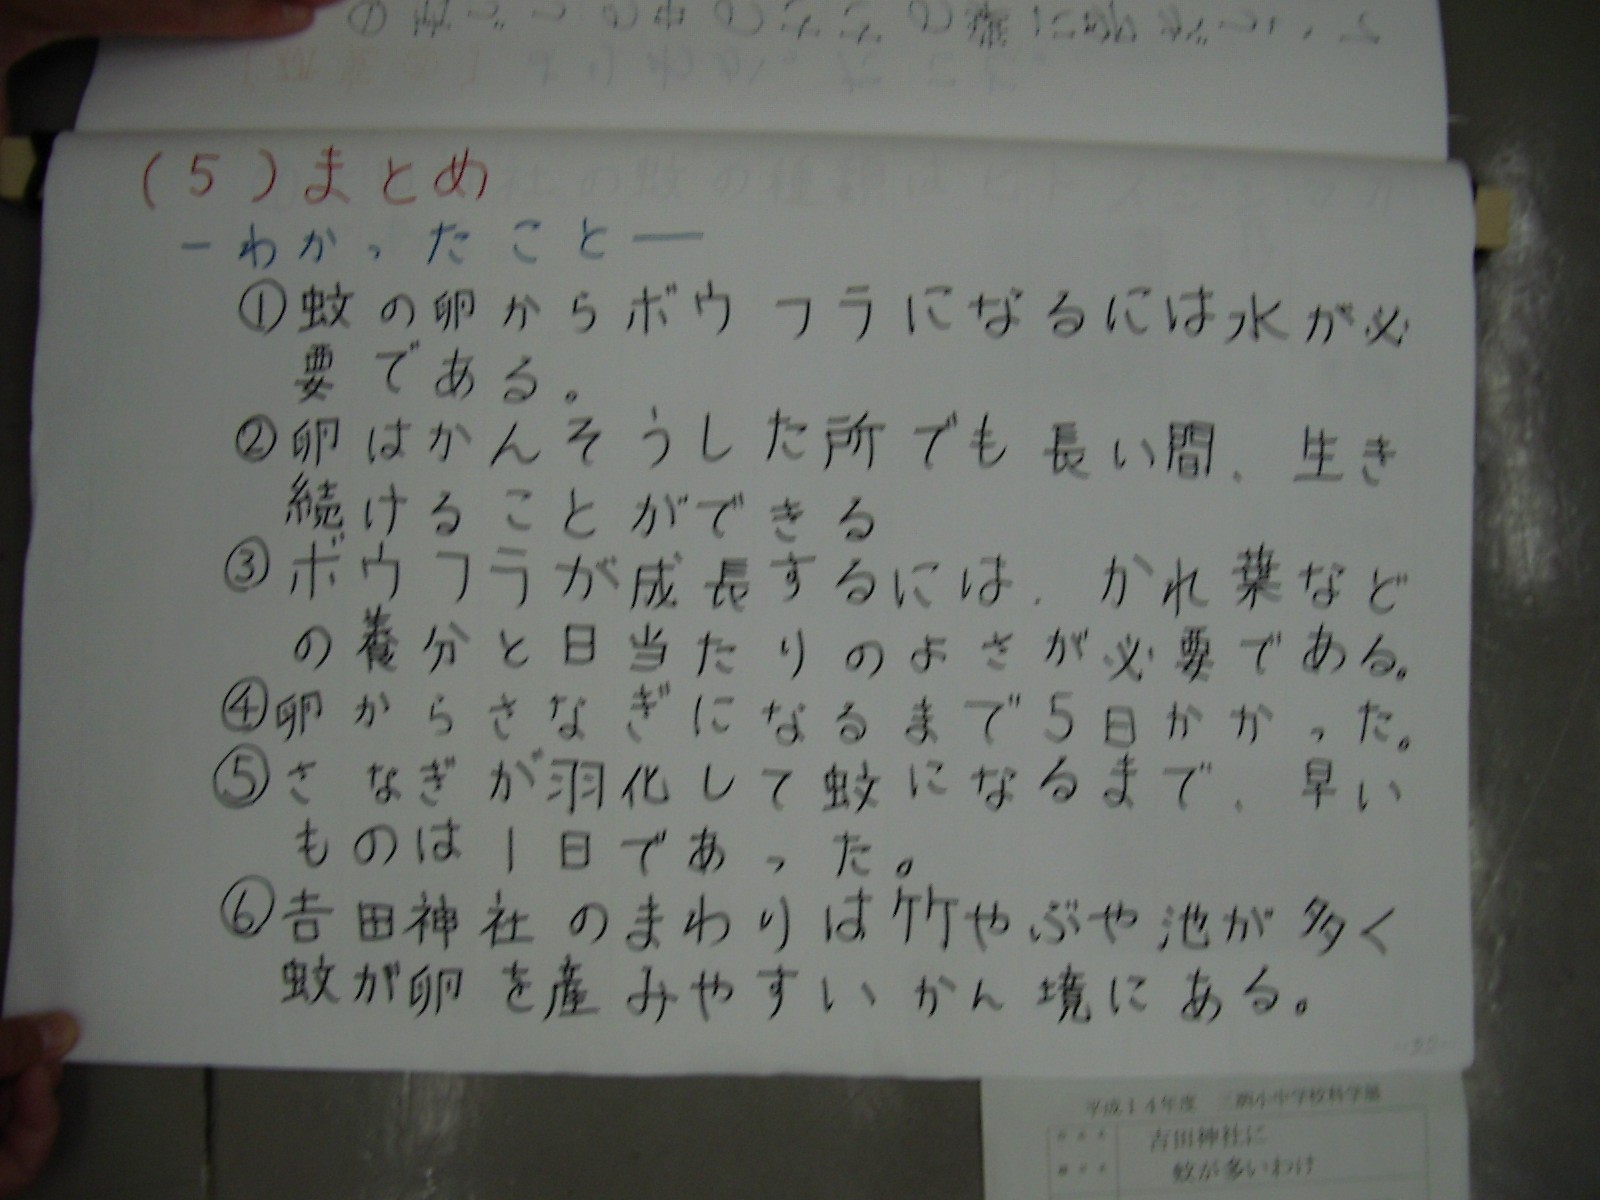 (5)まとめ
－わかったこと－
①蚊の卵からボウフラになるには水が必
要である。
②卵はかんそうした所でも長い間、生き
続けることができる
③ボウフラが成長するには、かれ葉など
の養分と日当たりのよさが必要である。
④卵からさなぎになるまで5日かかった。
⑤さなぎが羽化して蚊になるまで、早い
ものは1日であった。
⑥吉田神社のまわりは竹やぶや池が多く
蚊が卵を産みやすいかん境にある。
平成14年度 小中学校科学展
吉田神社に
蚊が多いわけ